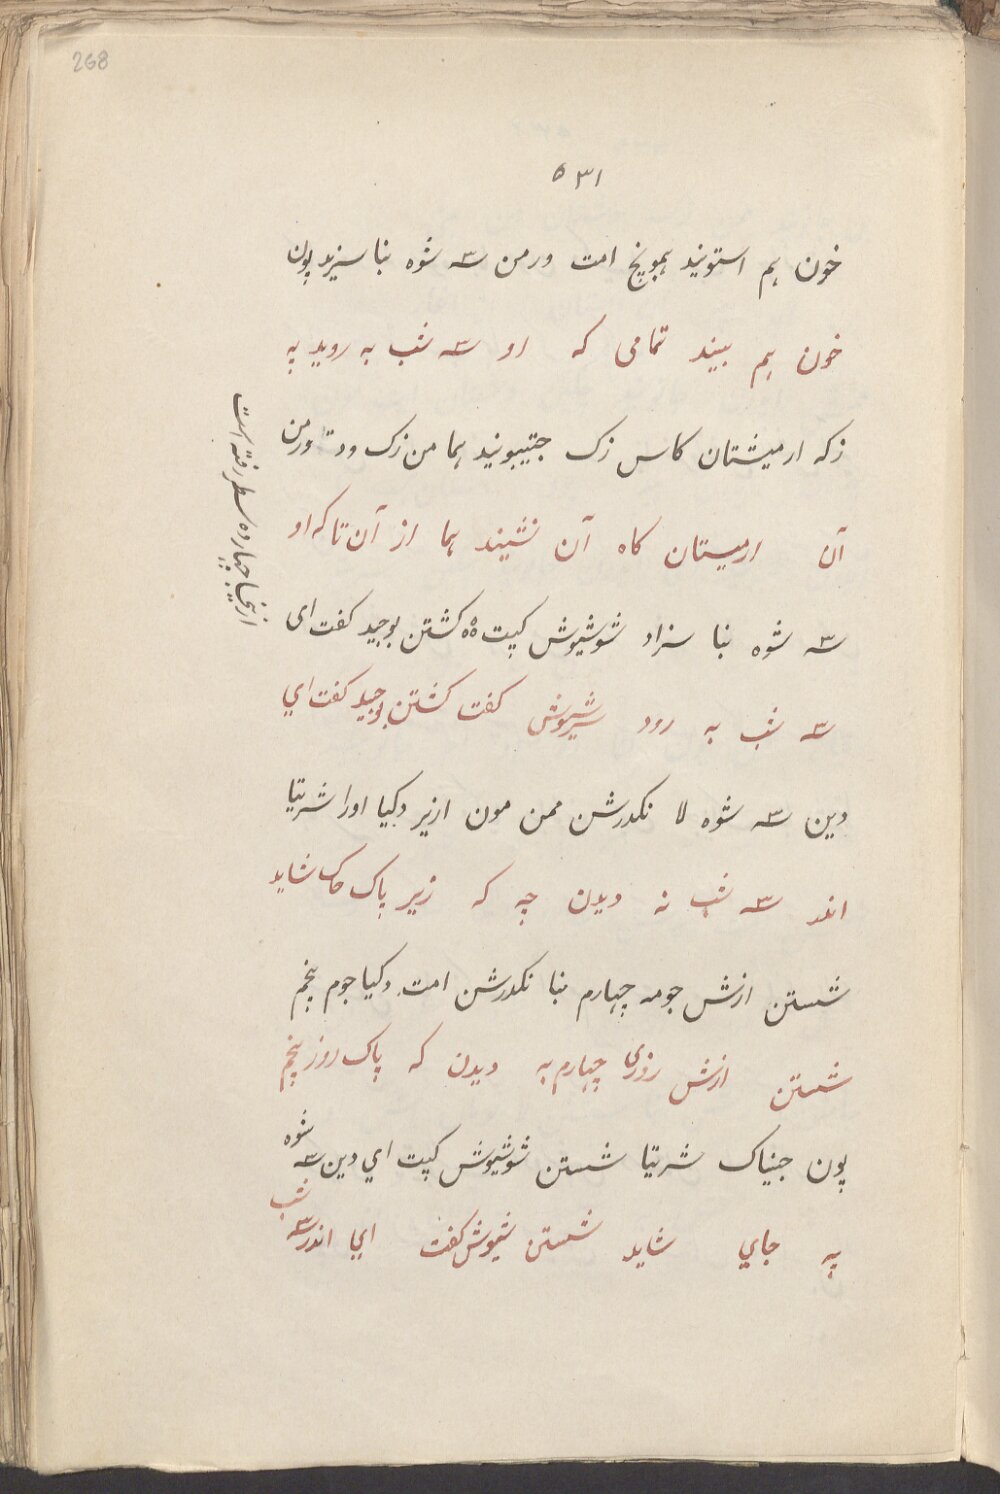 268
۵۳۱
خون هم استونید همبونج امت ورمن سه شوه بنا سزید پون
خون هم بیند تمامی که او سه شب به روید په
زکه ارمیشتان کاس زک جتیبونید هما من زک ودت ورمن
آن ارمیستان کاه آن نشیند هما از آن تا که او
سه شوه بنا سزاد شوشیوش کپت ۵۵ کشتن بوجید کفت ای
سه شب به رود شیوش کفت کشتن بوجید کفت اي
دین سه شوه لا نکدرشن ممن مون ازیر دکیا اورا شریتا
اند سه شب نه دیدن چه که زیر پاک خاک شاید
شستن ازش جومه چهارم بنا نکدرشن امت دکیا جوم پنجم
شستن ازش روزی چهارم به دیدن که پاک روز پنجم
پون جیناک شریتا شستن شوشیوش کپت اي دین سه شوه
په جاي شاید شستن شیوش کفت اي اندر سه شب
از ینجا چهارده سطر رفته است